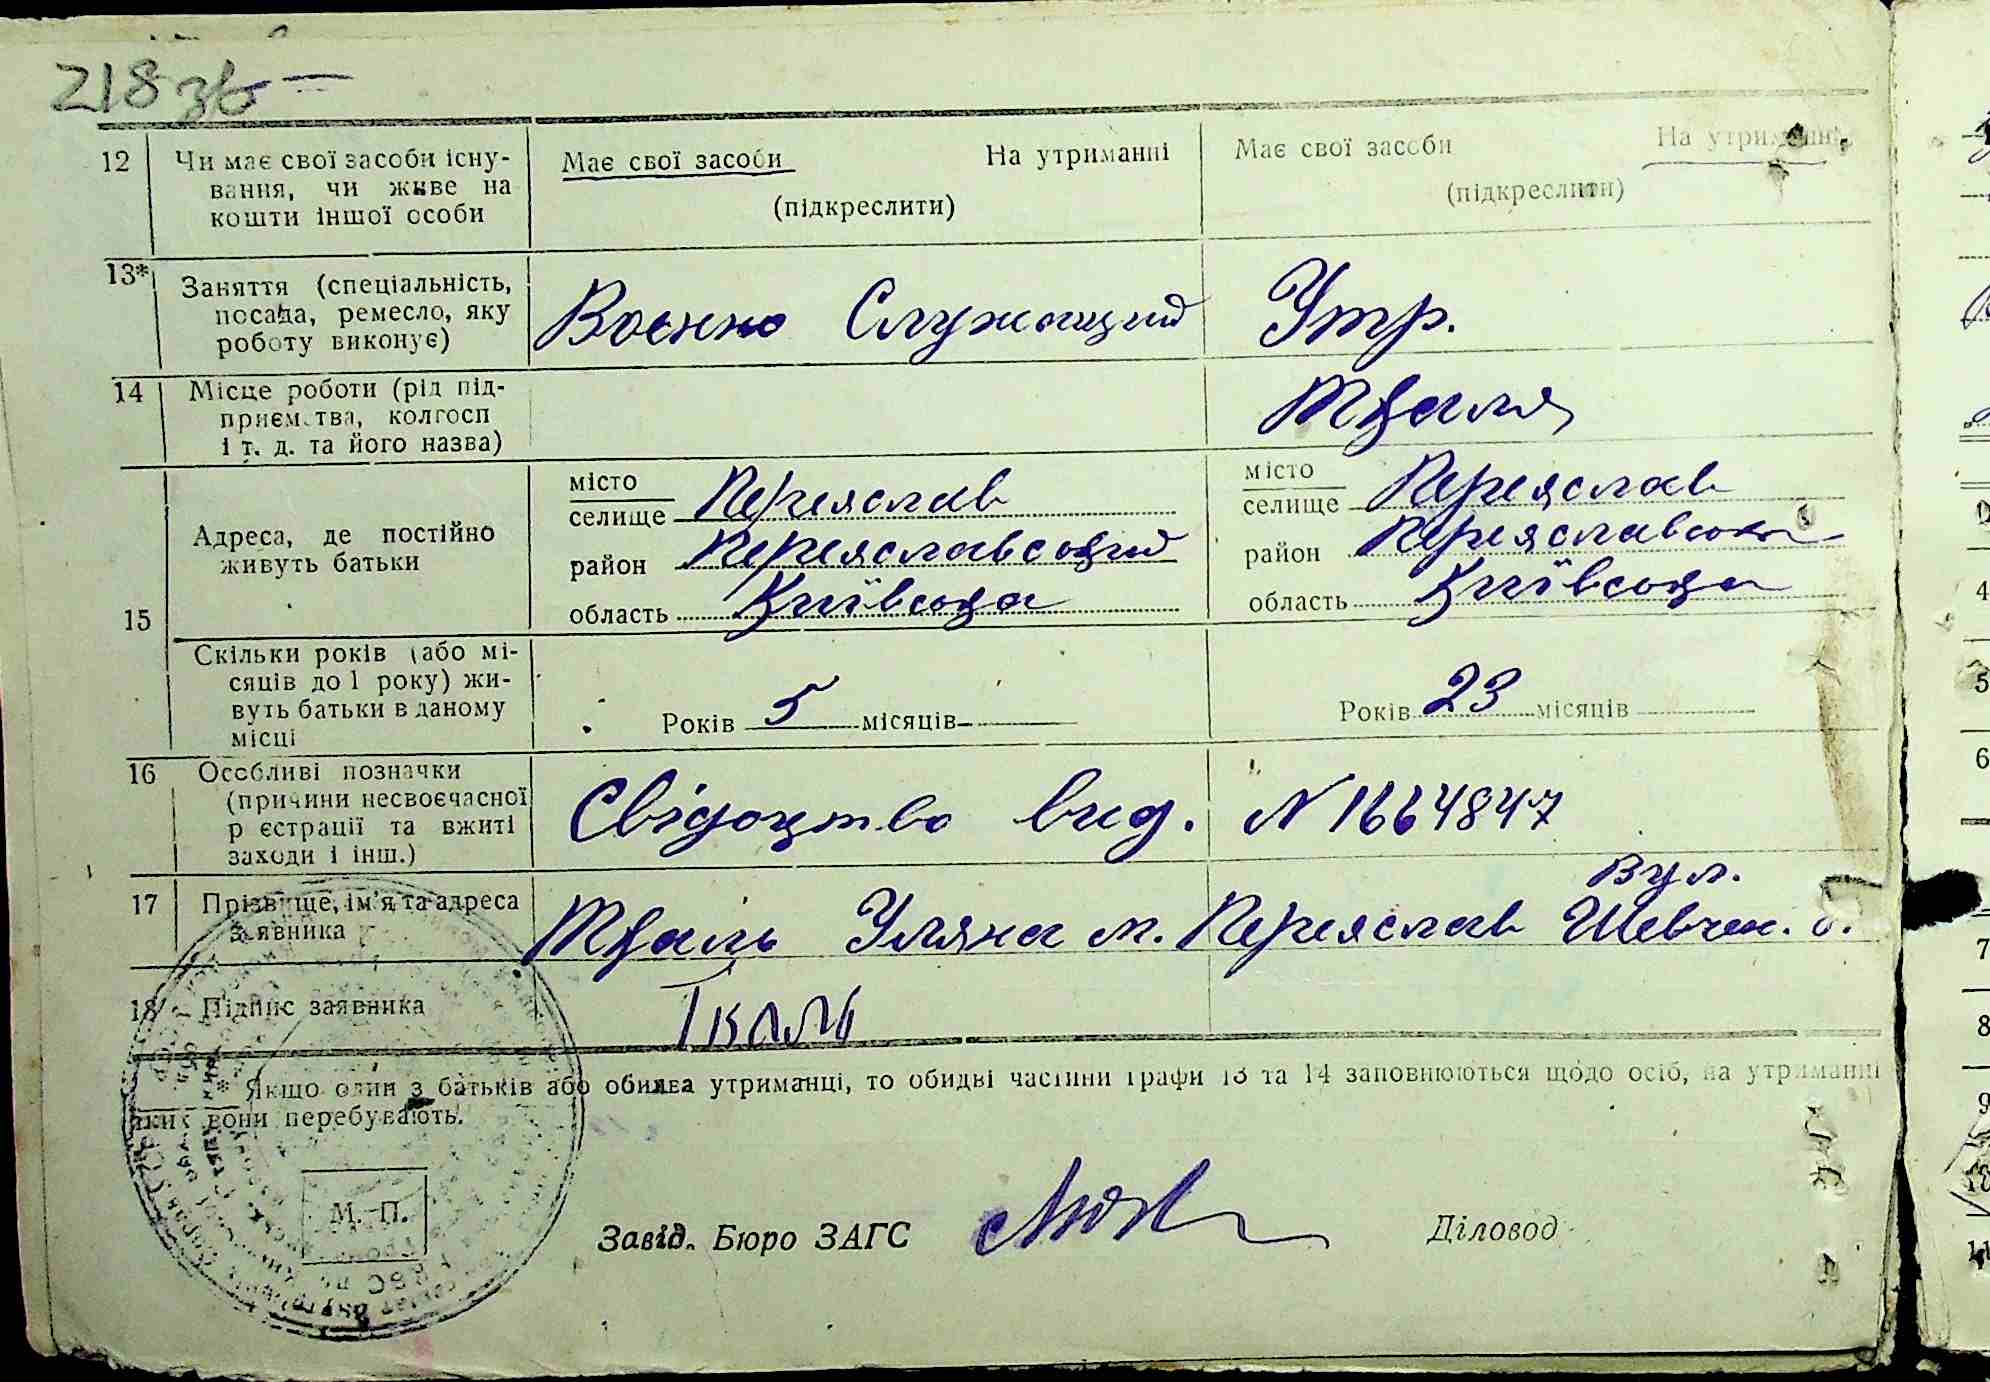 218 зв
12 Чи має свої засоби існу- Має свої засоби На утриманні Має свої засоби На утриманні
вання, чи живе на (підкреслити) (підкреслити)
кошти іншої особи
13* Заняття (спеціальність, Воєнно Служащий Утр.
посада, ремесло, яку
роботу виконує)
14 Місце роботи (рід під- Ткаля
приємства, колгосп
і т. д. та його назва)
15 Адреса, де постійно живуть батьки
місто
селище Переяслав
район Переяславський
область Київська
місто
селище Переяслав
район Переяславська
область Київська
Скільки років (або мі- Років 5 місяців Років 23 місяців
сяців до 1 року) жи-
вуть батьки в даному
місці
16 Особливі позначки Свідоцтво вид. N 1664847
(причини несвоєчасної
реєстрації та вжиті
заходи і інш.)
17 Прізвище, ім'я та адреса Ткаль Уляна м. Переяслав вул. Шевчен.
заявника
18 Підпис заявника Ткаль
* Якщо один з батьків або обидва утриманці, то обидві частини графи 13 та 14 заповнюються щодо осіб, на утриманні
яких вони перебувають.
М. П.
Завід. Бюро ЗАГС Діловод
4
5
6
7
8
9
10
11